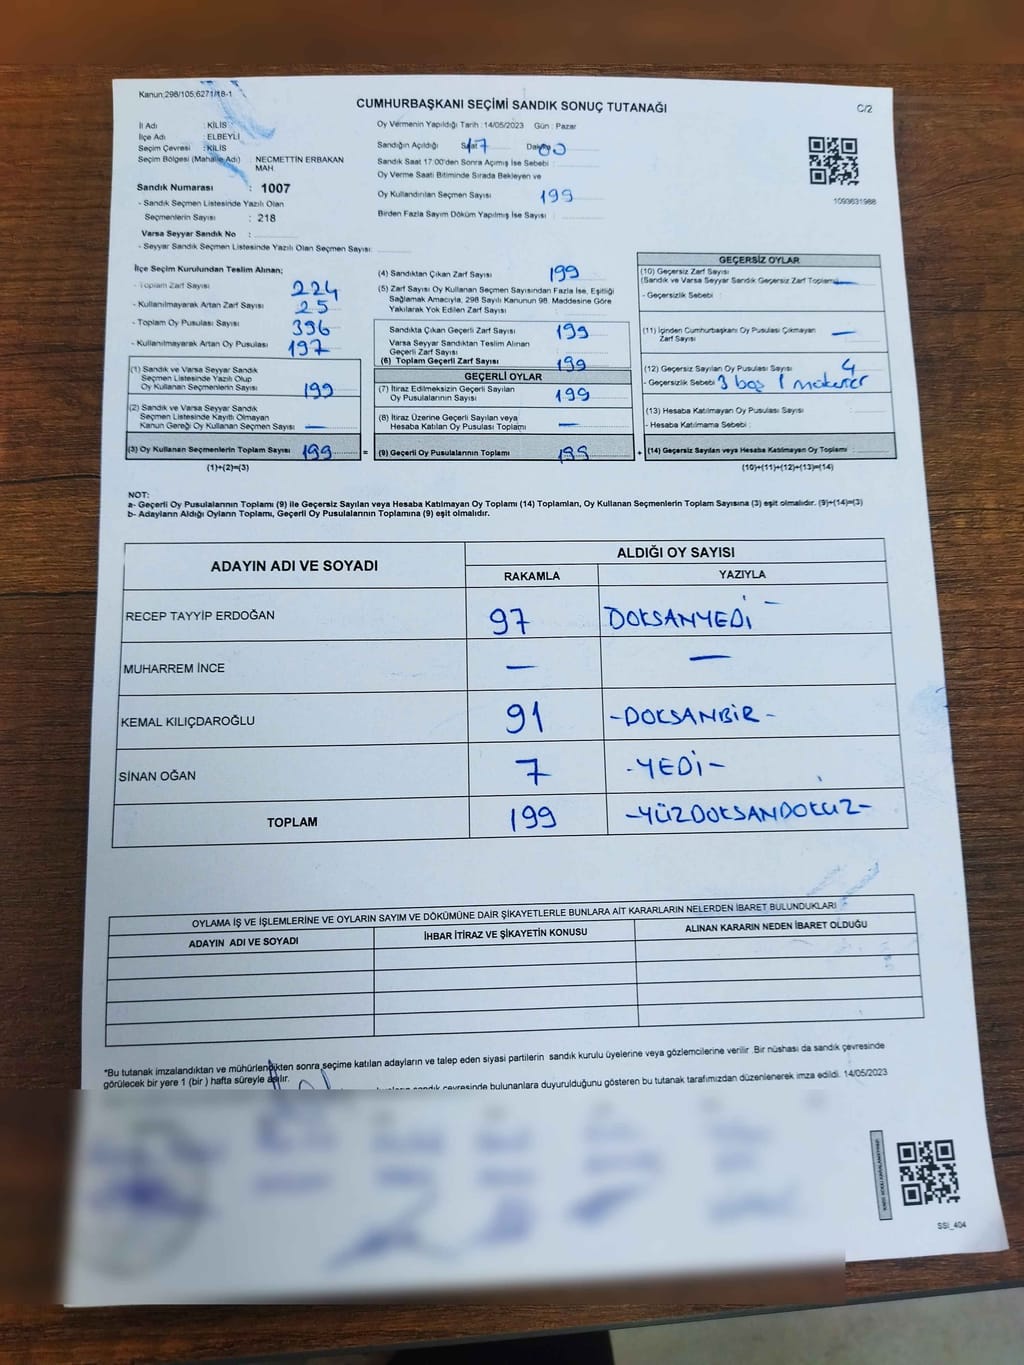 Kanun;298/105;6271/18-1
CUMHURBAŞKANI SEÇİMİ SANDIK SONUÇ TUTANAĞI
C/2
İl Adı : KİLİS
İlçe Adı : ELBEYLİ
Seçim Çevresi : KİLİS
Seçim Bölgesi (Mahalle Adı) : NECMETTİN ERBAKAN
MAH.
Sandık Numarası : 1007
- Sandık Seçmen Listesinde Yazılı Olan
Seçmenlerin Sayısı : 218
Varsa Seyyar Sandık No :
- Seyyar Sandık Seçmen Listesinde Yazılı Olan Seçmen Sayısı:
Oy Vermenin Yapıldığı Tarih : 14/05/2023 Gün : Pazar
Sandığın Açıldığı Saat 17 Dakika 00
Sandık Saat 17:00'den Sonra Açımış İse Sebebi :
Oy Verme Saati Bitiminde Sırada Bekleyen ve
Oy Kullandırılan Seçmen Sayısı 199
Birden Fazla Sayım Döküm Yapılmış İse Sayısı :
1093631988
İlçe Seçim Kurulundan Teslim Alınan;
- Toplam Zarf Sayısı 224
- Kullanılmayarak Artan Zarf Sayısı 25
- Toplam Oy Pusulası Sayısı 396
- Kullanılmayarak Artan Oy Pusulası 197
(1) Sandık ve Varsa Seyyar Sandık
Seçmen Listesinde Yazılı Olup
Oy Kullanan Seçmenlerin Sayısı 199
(2) Sandık ve Varsa Seyyar Sandık
Seçmen Listesinde Kayıtlı Olmayan
Kanun Gereği Oy Kullanan Seçmen Sayısı —
(3) Oy Kullanan Seçmenlerin Toplam Sayısı 199 =
(1)+(2)=(3)
(4) Sandıktan Çıkan Zarf Sayısı 199
(5) Zarf Sayısı Oy Kullanan Seçmen Sayısından Fazla İse, Eşitliği
Sağlamak Amacıyla, 298 Sayılı Kanunun 98. Maddesine Göre
Yakılarak Yok Edilen Zarf Sayısı :
Sandıkta Çıkan Geçerli Zarf Sayısı 199
Varsa Seyyar Sandıktan Teslim Alınan
Geçerli Zarf Sayısı
(6) Toplam Geçerli Zarf Sayısı 199
GEÇERLİ OYLAR
(7) İtiraz Edilmeksizin Geçerli Sayılan
Oy Pusulalarının Sayısı 199
(8) İtiraz Üzerine Geçerli Sayılan veya
Hesaba Katılan Oy Pusulası Toplamı —
(9) Geçerli Oy Pusulalarının Toplamı 199 +
GEÇERSİZ OYLAR
(10) Geçersiz Zarf Sayısı
(Sandık ve Varsa Seyyar Sandık Geçersiz Zarf Toplamı) —
- Geçersizlik Sebebi :
(11) İçinden Cumhurbaşkanı Oy Pusulası Çıkmayan
Zarf Sayısı —
(12) Geçersiz Sayılan Oy Pusulası Sayısı 4
- Geçersizlik Sebebi 3 boş 1
(13) Hesaba Katılmayan Oy Pusulası Sayısı
- Hesaba Katılmama Sebebi :
(14) Geçersiz Sayılan veya Hesaba Katılmayan Oy Toplamı :
(10)+(11)+(12)+(13)=(14)
NOT:
a- Geçerli Oy Pusulalarının Toplamı (9) ile Geçersiz Sayılan veya Hesaba Katılmayan Oy Toplamı (14) Toplamları, Oy Kullanan Seçmenlerin Toplam Sayısına (3) eşit olmalıdır. (9)+(14)=(3)
b- Adayların Aldığı Oyların Toplamı, Geçerli Oy Pusulalarının Toplamına (9) eşit olmalıdır.
ADAYIN ADI VE SOYADI
ALDIĞI OY SAYISI
RAKAMLA YAZIYLA
RECEP TAYYİP ERDOĞAN 97 DOKSANYEDİ -
MUHARREM İNCE — —
KEMAL KILIÇDAROĞLU 91 -DOKSANBİR-
SİNAN OĞAN 7 -YEDİ-
TOPLAM 199 -YÜZDOKSANDOKUZ-
OYLAMA İŞ VE İŞLEMLERİNE VE OYLARIN SAYIM VE DÖKÜMÜNE DAİR ŞİKAYETLERLE BUNLARA AİT KARARLARIN NELERDEN İBARET BULUNDUKLARI
ADAYIN ADI VE SOYADI İHBAR İTİRAZ VE ŞİKAYETİN KONUSU ALINAN KARARIN NEDEN İBARET OLDUĞU
*Bu tutanak imzalandıktan ve mühürlendikten sonra seçime katılan adayların ve talep eden siyasi partilerin sandık kurulu üyelerine veya gözlemcilerine verilir. Bir nüshası da sandık çevresinde
görülecek bir yere 1 (bir ) hafta süreyle asılır.
sandık çevresinde bulunanlara duyurulduğunu gösteren bu tutanak tarafımızdan düzenlenerek imza edildi. 14/05/2023
SSI_404